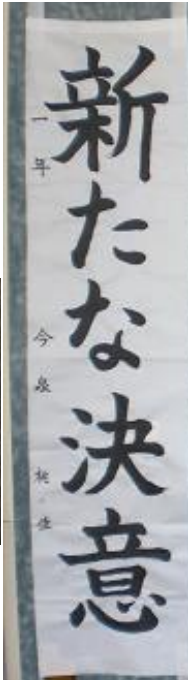 新たな決意
一年 今泉 桃佳